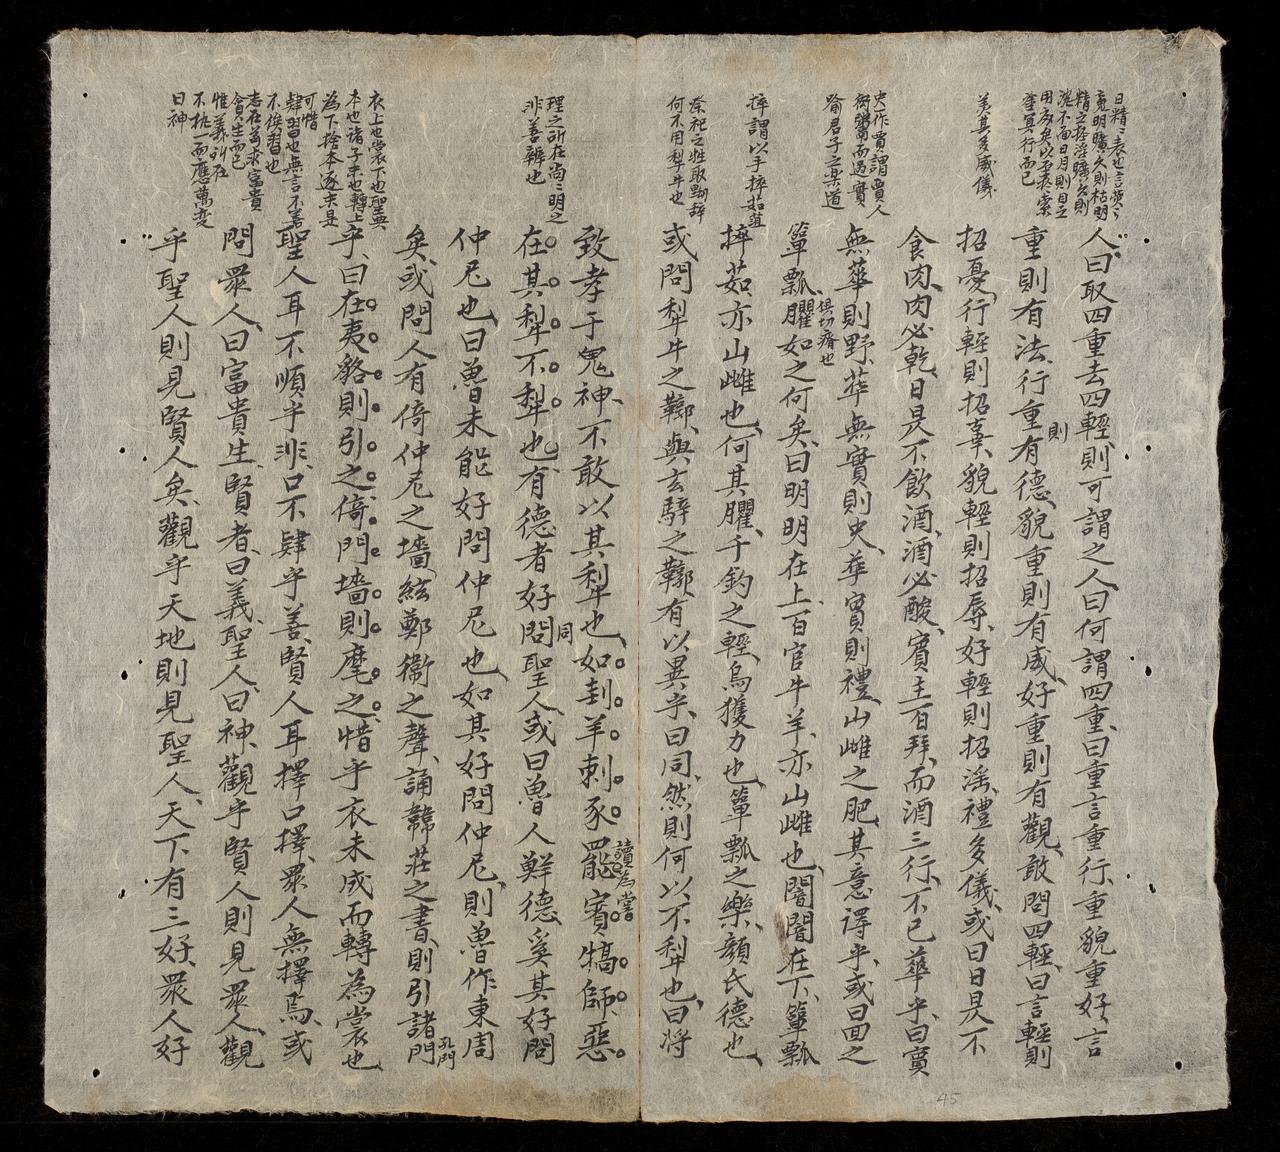 美其多威儀
史作賈謂賈人
衒鬻而過實
喻君子之樂道
捽謂以手捽茹
何不用犁牛也
人曰取四重去四輕則可謂之人曰何謂四重曰重言重行重貌重好言
重則有法行重則有德貌重則有威好重則有觀敢問四輕曰言輕則
招憂行輕則招辜貌輕則招辱好輕則招滛禮多儀或曰日是不
食肉肉必乾日是不飲酒酒必酸賓主百拜而酒三行不已華乎曰實
無華則野華無實則史華實則禮山雌之肥其意得乎或曰回之
簞瓢臞俱切瘠也如之何矣曰明明在上百官牛羊亦山雌也闇闇在下簞瓢
捽茹亦山雌也何其臞千鈞之輕烏獲力也簞瓢之樂顏氏德也
或問犁牛之鞹與玄騂之鞹有以異乎曰同然則何以不犁也曰將
理之所在尚々明之
非善辨也
衣上也裳下也聖典
本也諸子末也轉上
為下捨本逐末是
可惜
肆習也無言不善
不俟習也
志在苟求富貴
貪生而已
惟義所在
不杭一而應萬变
曰神
致孝于鬼神不敢以其犁也如刲羊刺豕罷賓犒師惡
讀為嘗
在其犁不犁也有德者好問聖人或曰魯人鮮德奚其好問
同
仲尼也曰魯未能好問仲尼也如其好問仲尼則魯作東周
矣或問人有倚仲尼之墻絃鄭衞之聲誦韓莊之書則引諸門
孔門
乎曰在夷貉則引之倚門墻則麾之惜乎衣未成而轉為裳也
聖人耳不順乎非口不肆乎善賢人耳擇口擇眾人無擇焉或
問眾人曰富貴生賢者曰義聖人曰神觀乎賢人則見眾人觀
乎聖人則見賢人矣觀乎天地則見聖人天下有三好眾人好
45